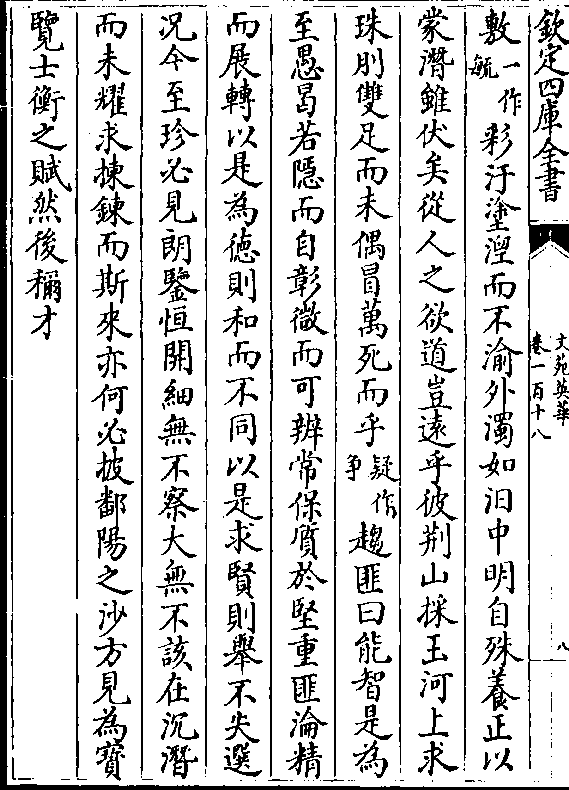 欽定四庫全書
文苑英華
卷一百十八
八
敷一作毓彩汙塗湼而不渝外濁如汨中明自殊養正以
蒙潛雖伏矣從人之欲道豈遠乎彼荆山採玉河上求
珠刖雙足而未偶冒萬死而乎疑作争趨匪曰能智是為
至愚曷若隠而自彰微而可辨常保質於堅重匪淪精
而展轉以是為徳則和而不同以是求賢則舉不失選
况今至珍必見朗鑒恒開細無不察大無不該在沉潛
而未耀求揀鍊而斯來亦何必披鄱陽之沙方見為寳
覽士衡之賦然後稱才